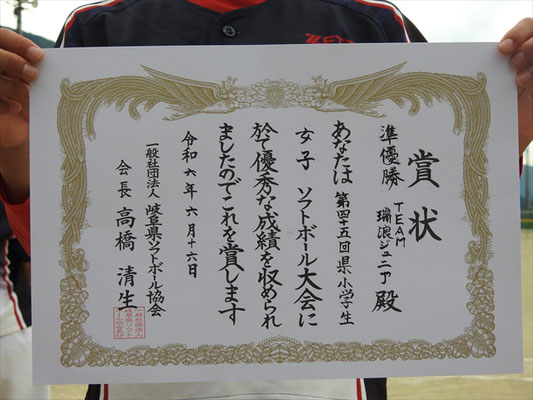 賞状
準優勝
TEAM
瑞浪ジュニア 殿
あなたは 第四十五回県小学生
女子 ソフトボール大会に
於て優秀な成績を収められ
ましたのでこれを賞します
令和六年六月十六日
一般社団法人 岐阜県ソフトボール協会
会長 高橋清生